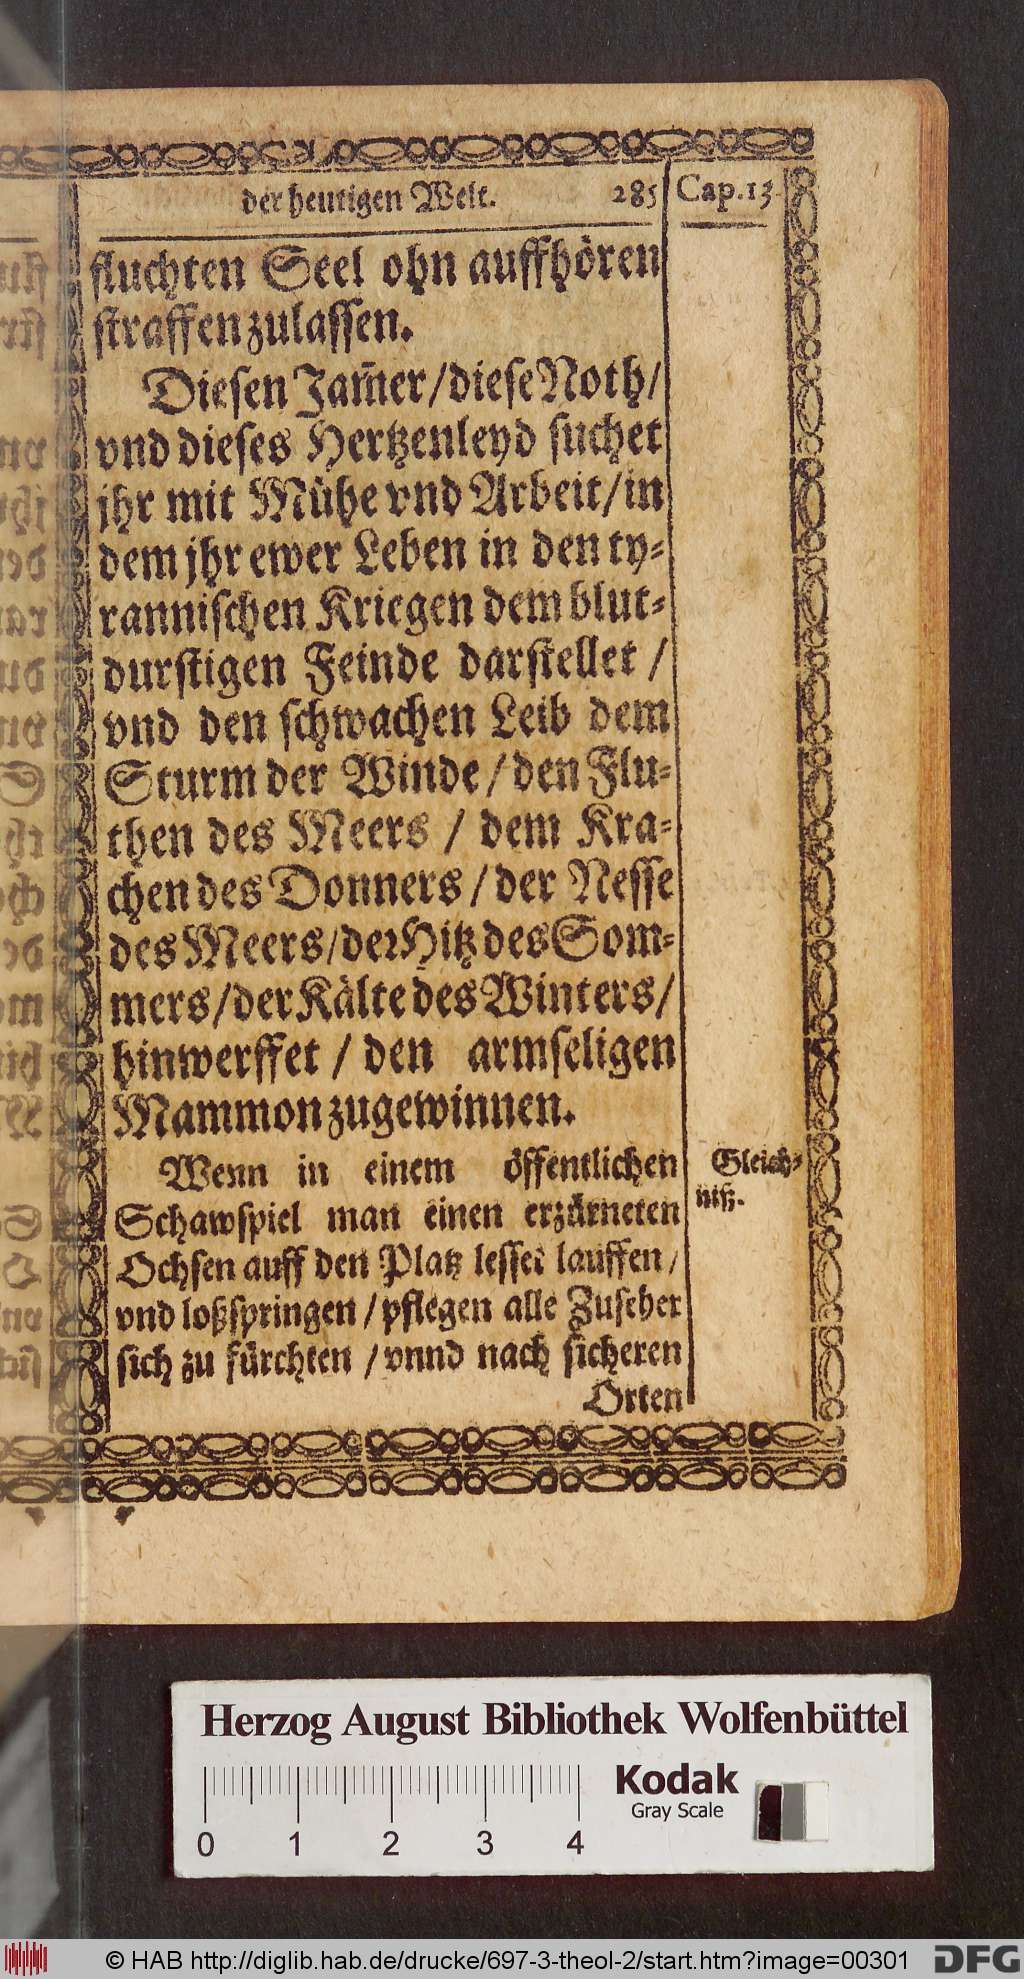 der heutigen Welt. 285 Cap. 13.
fluchten Seel ohn auffhören
straffen zulassen.
Diesen Jam̃er/diese Noth/
vnd dieses Hertzenleyd suchet
jhr mit Mühe vnd Arbeit/in
dem jhr ewer Leben in den ty-
rannischen Kriegen dem blut-
durstigen Feinde darstellet /
vnd den schwachen Leib dem
Sturm der Winde / den Flu-
then des Meers / dem Kra-
chen des Donners / der Nesse
des Meers/der Hitz des Som-
mers/der Kälte des Winters/
hinwerffet / den armseligen
Mammon zugewinnen.
Wenn in einem öffentlichen
Gleich-
niß.
Schawspiel man einen erzürneten
Ochsen auff den Platz lesset lauffen/
vnd loßspringen / pflegen alle Zuseher
sich zu fürchten / vnnd nach sicheren
Orten
Herzog August Bibliothek Wolfenbüttel
Kodak
Gray Scale
0 1 2 3 4
© HAB http://diglib.hab.de/drucke/697-3-theol-2/start.htm?image=00301 DFG